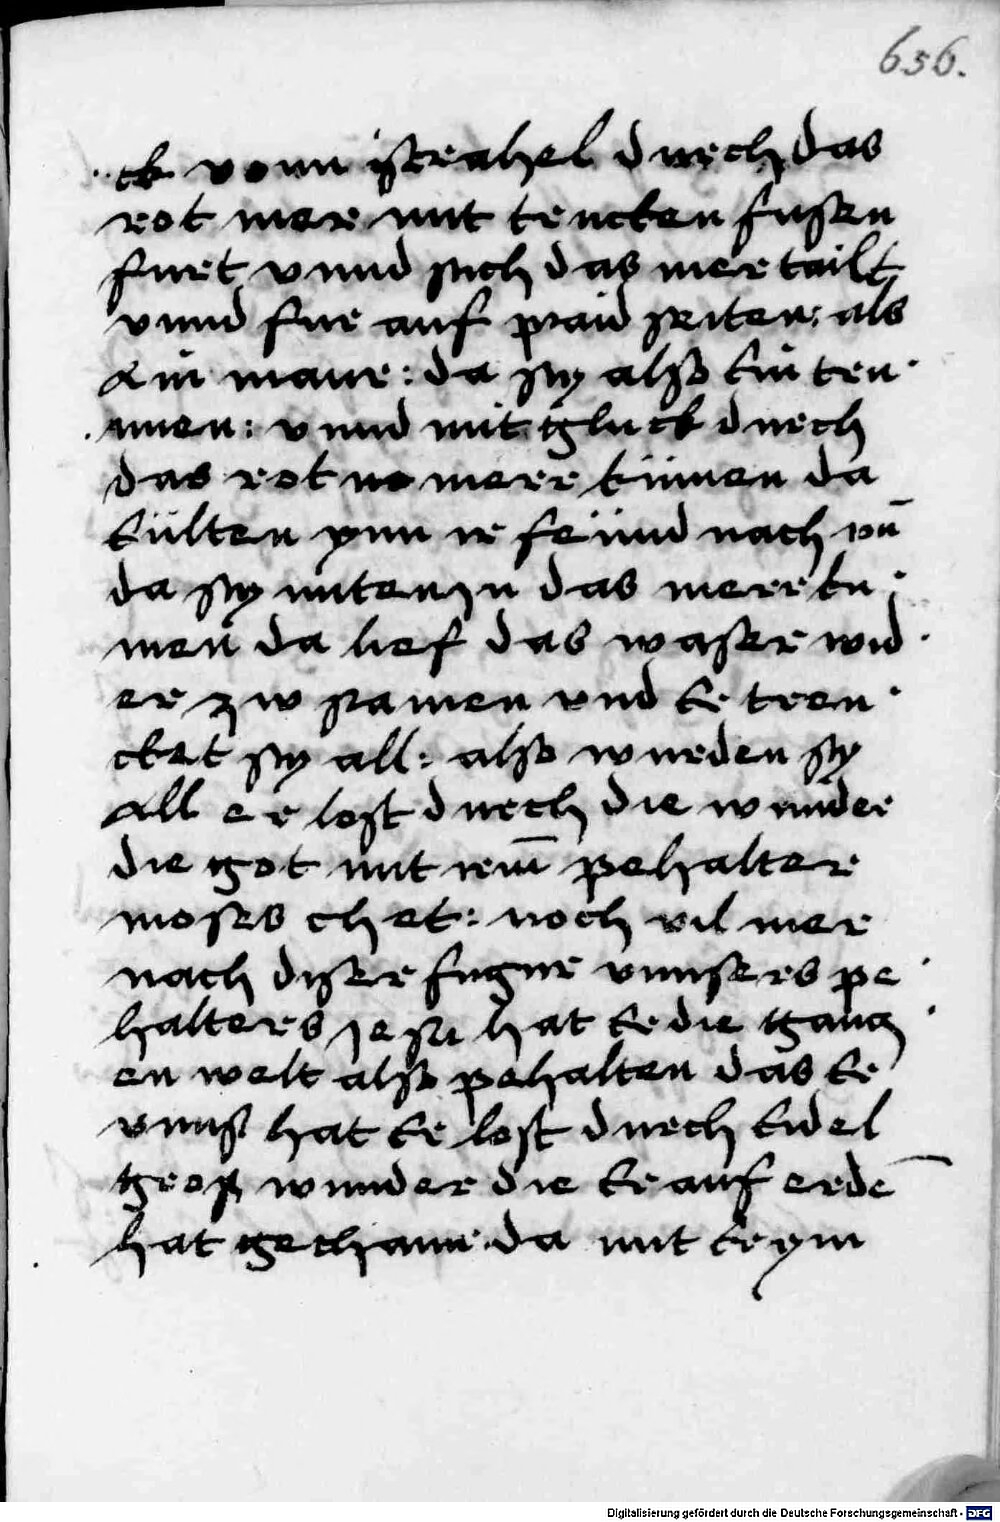 656.
ck vonn jsrahel durch das
rot mer mit trucken fusen
furt vnnd sich das mer tailt
vnnd fur auf paid seiten: als
ein maur: da sy also Ein tru
nnen: vnnd mit gluck durch
das rot merr kumen da
Eülten ynn ir feünd nach vn̄
da sy miten zu das merr ku
men da lief das waser wid
er zw samen vnd Er tren
cket sy all: also wurden sy
all er lost durch die wunder
die got mit irm̄ pehalter
moses thet: noch vil mer
nach diser fugur vnnsers pe
halters jesu hat Er die gancz
en welt also pehalten das Er
vnns hat Er lost durch Eidel
gros wunder die Er auf erdē
hat gethann da mit Er ym
Digitalisierung gefördert durch die Deutsche Forschungsgemeinschaft - DFG